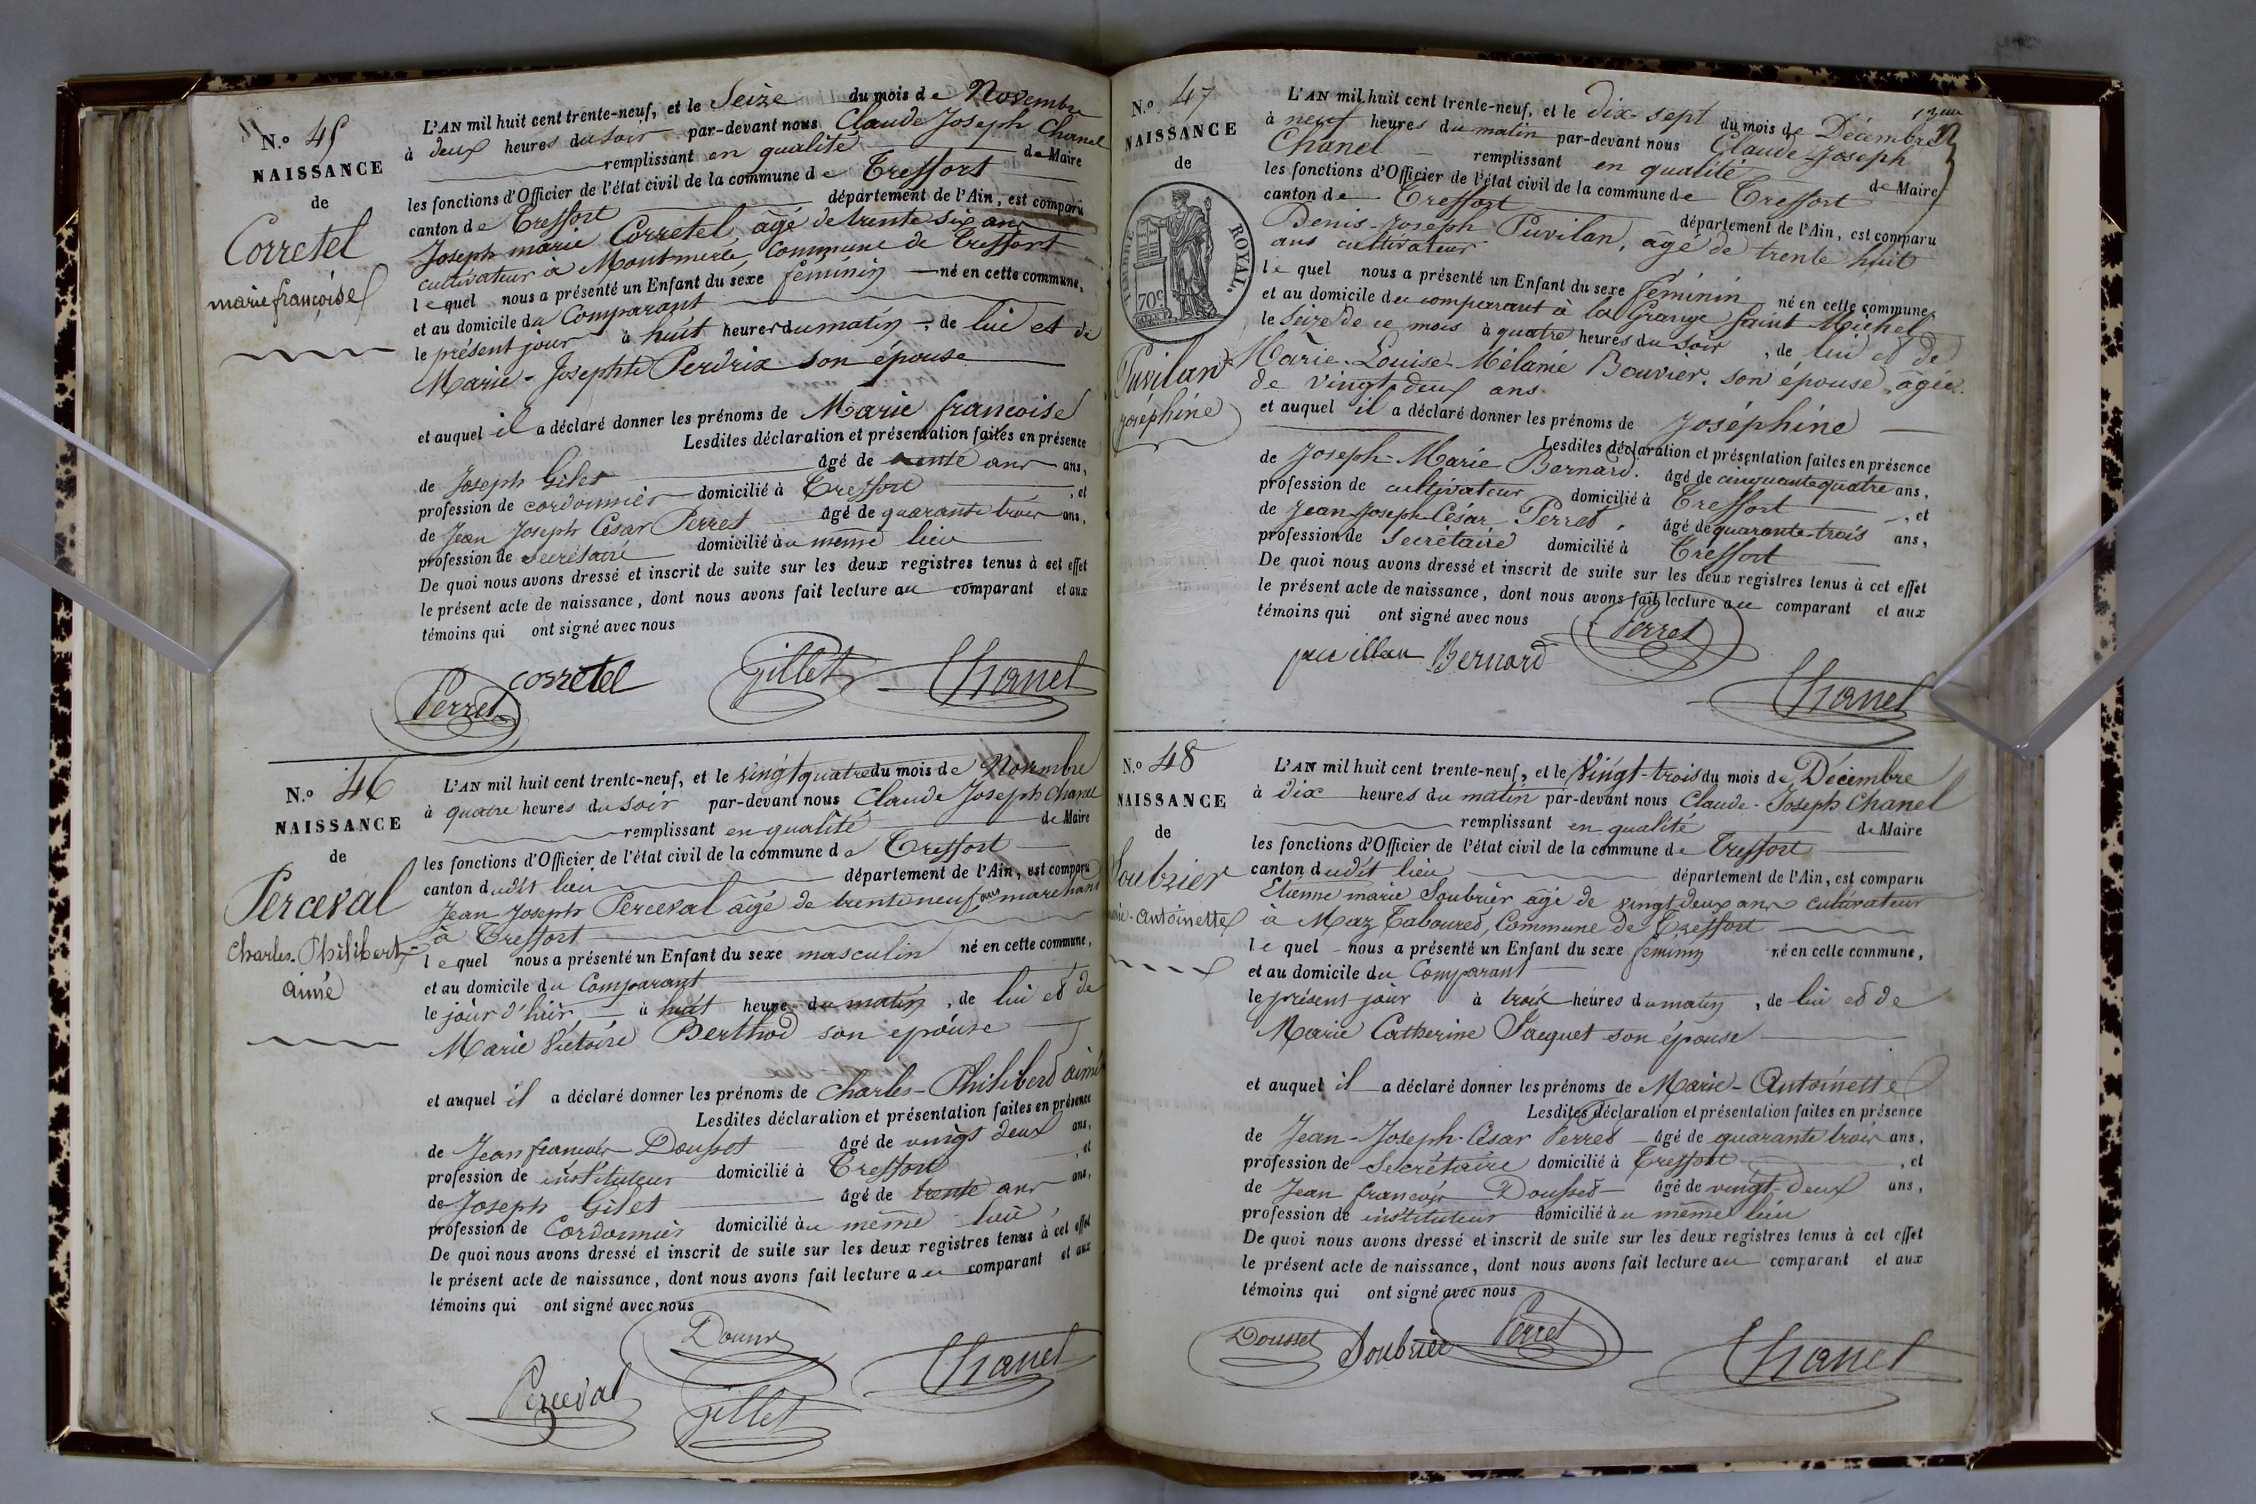 N.o 45
NAISSANCE
de
Corretel
marie françoise
L'AN mil huit cent trente-neuf, et le Seize du mois de Novembre
à deux heures du soir par-devant nous Claude Joseph Chanel
remplissant en qualité de Maire
les fonctions d'Officier de l'état civil de la commune de Treffort
canton de Treffort département de l'Ain, est comparu
Joseph marie Corretel âgé de trente six ans
cultivateur à Montmerle, Commune de Treffort
lequel nous a présenté un Enfant du sexe féminin né en cette commune,
et au domicile du Comparant
le présent jour à huit heures du matin, de lui et de
Marie-Josephte Perdrix son épouse
et auquel il a déclaré donner les prénoms de Marie françoise
Lesdites déclaration et présentation faites en présence
de Joseph Gilet âgé de trente ans ans,
profession de cordonnier domicilié à Treffort, et
de Jean Joseph César Perret âgé de quarante trois ans,
profession de Secrétaire domicilié au même lieu
De quoi nous avons dressé et inscrit de suite sur les deux registres tenus à cet effet
le présent acte de naissance, dont nous avons fait lecture au comparant et aux
témoins qui ont signé avec nous
Perret corretel gillet Chanel
N.o 46
NAISSANCE
de
Perceval
Charles-Philibert-
aimé
L'AN mil huit cent trente-neuf, et le vingt quatre du mois de Novembre
à quatre heures du soir par-devant nous Claude Joseph Chanel
remplissant en qualité de Maire
les fonctions d'Officier de l'état civil de la commune de Treffort
canton dudit lieu département de l'Ain, est comparu
Jean Joseph Perceval âgé de trente neuf ans marchand
à Treffort
lequel nous a présenté un Enfant du sexe masculin né en cette commune,
et au domicile du Comparant
le jour d'hier à huit heures du matin, de lui et de
Marie Victoire Berthod son épouse
et auquel il a déclaré donner les prénoms de Charles-Philibert aimé
Lesdites déclaration et présentation faites en présence
de Jean francois Dousset âgé de vingt deux ans,
profession de instituteur domicilié à Treffort, et
de Joseph Gilet âgé de trente ans ans,
profession de Cordonnier domicilié au même lieu
De quoi nous avons dressé et inscrit de suite sur les deux registres tenus à cet effet
le présent acte de naissance, dont nous avons fait lecture au comparant et aux
témoins qui ont signé avec nous
Dousset
Perceval gillet Chanel
N.o 47
NAISSANCE
de
TIMBRE ROYAL.
70c
Puvilan
Joséphine
L'AN mil huit cent trente-neuf, et le dix-sept du mois de Décembre
à neuf heures du matin par-devant nous Claude-Joseph
Chanel remplissant en qualité de Maire
les fonctions d'Officier de l'état civil de la commune de Treffort
canton de Treffort département de l'Ain, est comparu
Denis-Joseph Puvilan, âgé de trente huit
ans cultivateur
lequel nous a présenté un Enfant du sexe féminin né en cette commune,
et au domicile du comparant à la Grange Saint Michel
le seize de ce mois à quatre heures du soir, de lui et de
Marie-Louise-Mélanie Bouvier, son épouse, âgée
de vingt-deux ans
et auquel il a déclaré donner les prénoms de Joséphine
Lesdites déclaration et présentation faites en présence
de Joseph-Marie Bernard. âgé de cinquante quatre ans,
profession de cultivateur domicilié à Treffort, et
de Jean-Joseph-César Perret, âgé de quarante-trois ans,
profession de Secrétaire domicilié à Treffort
De quoi nous avons dressé et inscrit de suite sur les deux registres tenus à cet effet
le présent acte de naissance, dont nous avons fait lecture au comparant et aux
témoins qui ont signé avec nous
puvillan Bernard Perret
Chanel
N.o 48
NAISSANCE
de
Soubrier
marie-Antoinette
L'AN mil huit cent trente-neuf, et le Vingt-trois du mois de Décembre
à dix heures du matin par-devant nous Claude-Joseph Chanel
remplissant en qualité de Maire
les fonctions d'Officier de l'état civil de la commune de Treffort
canton dudit lieu département de l'Ain, est comparu
Etienne marie Soubrier âgé de vingt deux ans cultivateur
à Maz Tabouret, Commune de Treffort
lequel nous a présenté un Enfant du sexe féminin né en cette commune,
et au domicile du Comparant
le présent jour à trois heures du matin, de lui et de
Marie Catherine Jacquet son épouse
et auquel il a déclaré donner les prénoms de Marie-Antoinette
Lesdites déclaration et présentation faites en présence
de Jean-Joseph-César Perret âgé de quarante trois ans,
profession de Secrétaire domicilié à Treffort, et
de Jean francois Dousset âgé de vingt-deux ans,
profession de instituteur domicilié au même lieu
De quoi nous avons dressé et inscrit de suite sur les deux registres tenus à cet effet
le présent acte de naissance, dont nous avons fait lecture au comparant et aux
témoins qui ont signé avec nous
Dousset Soubrier Perret Chanel